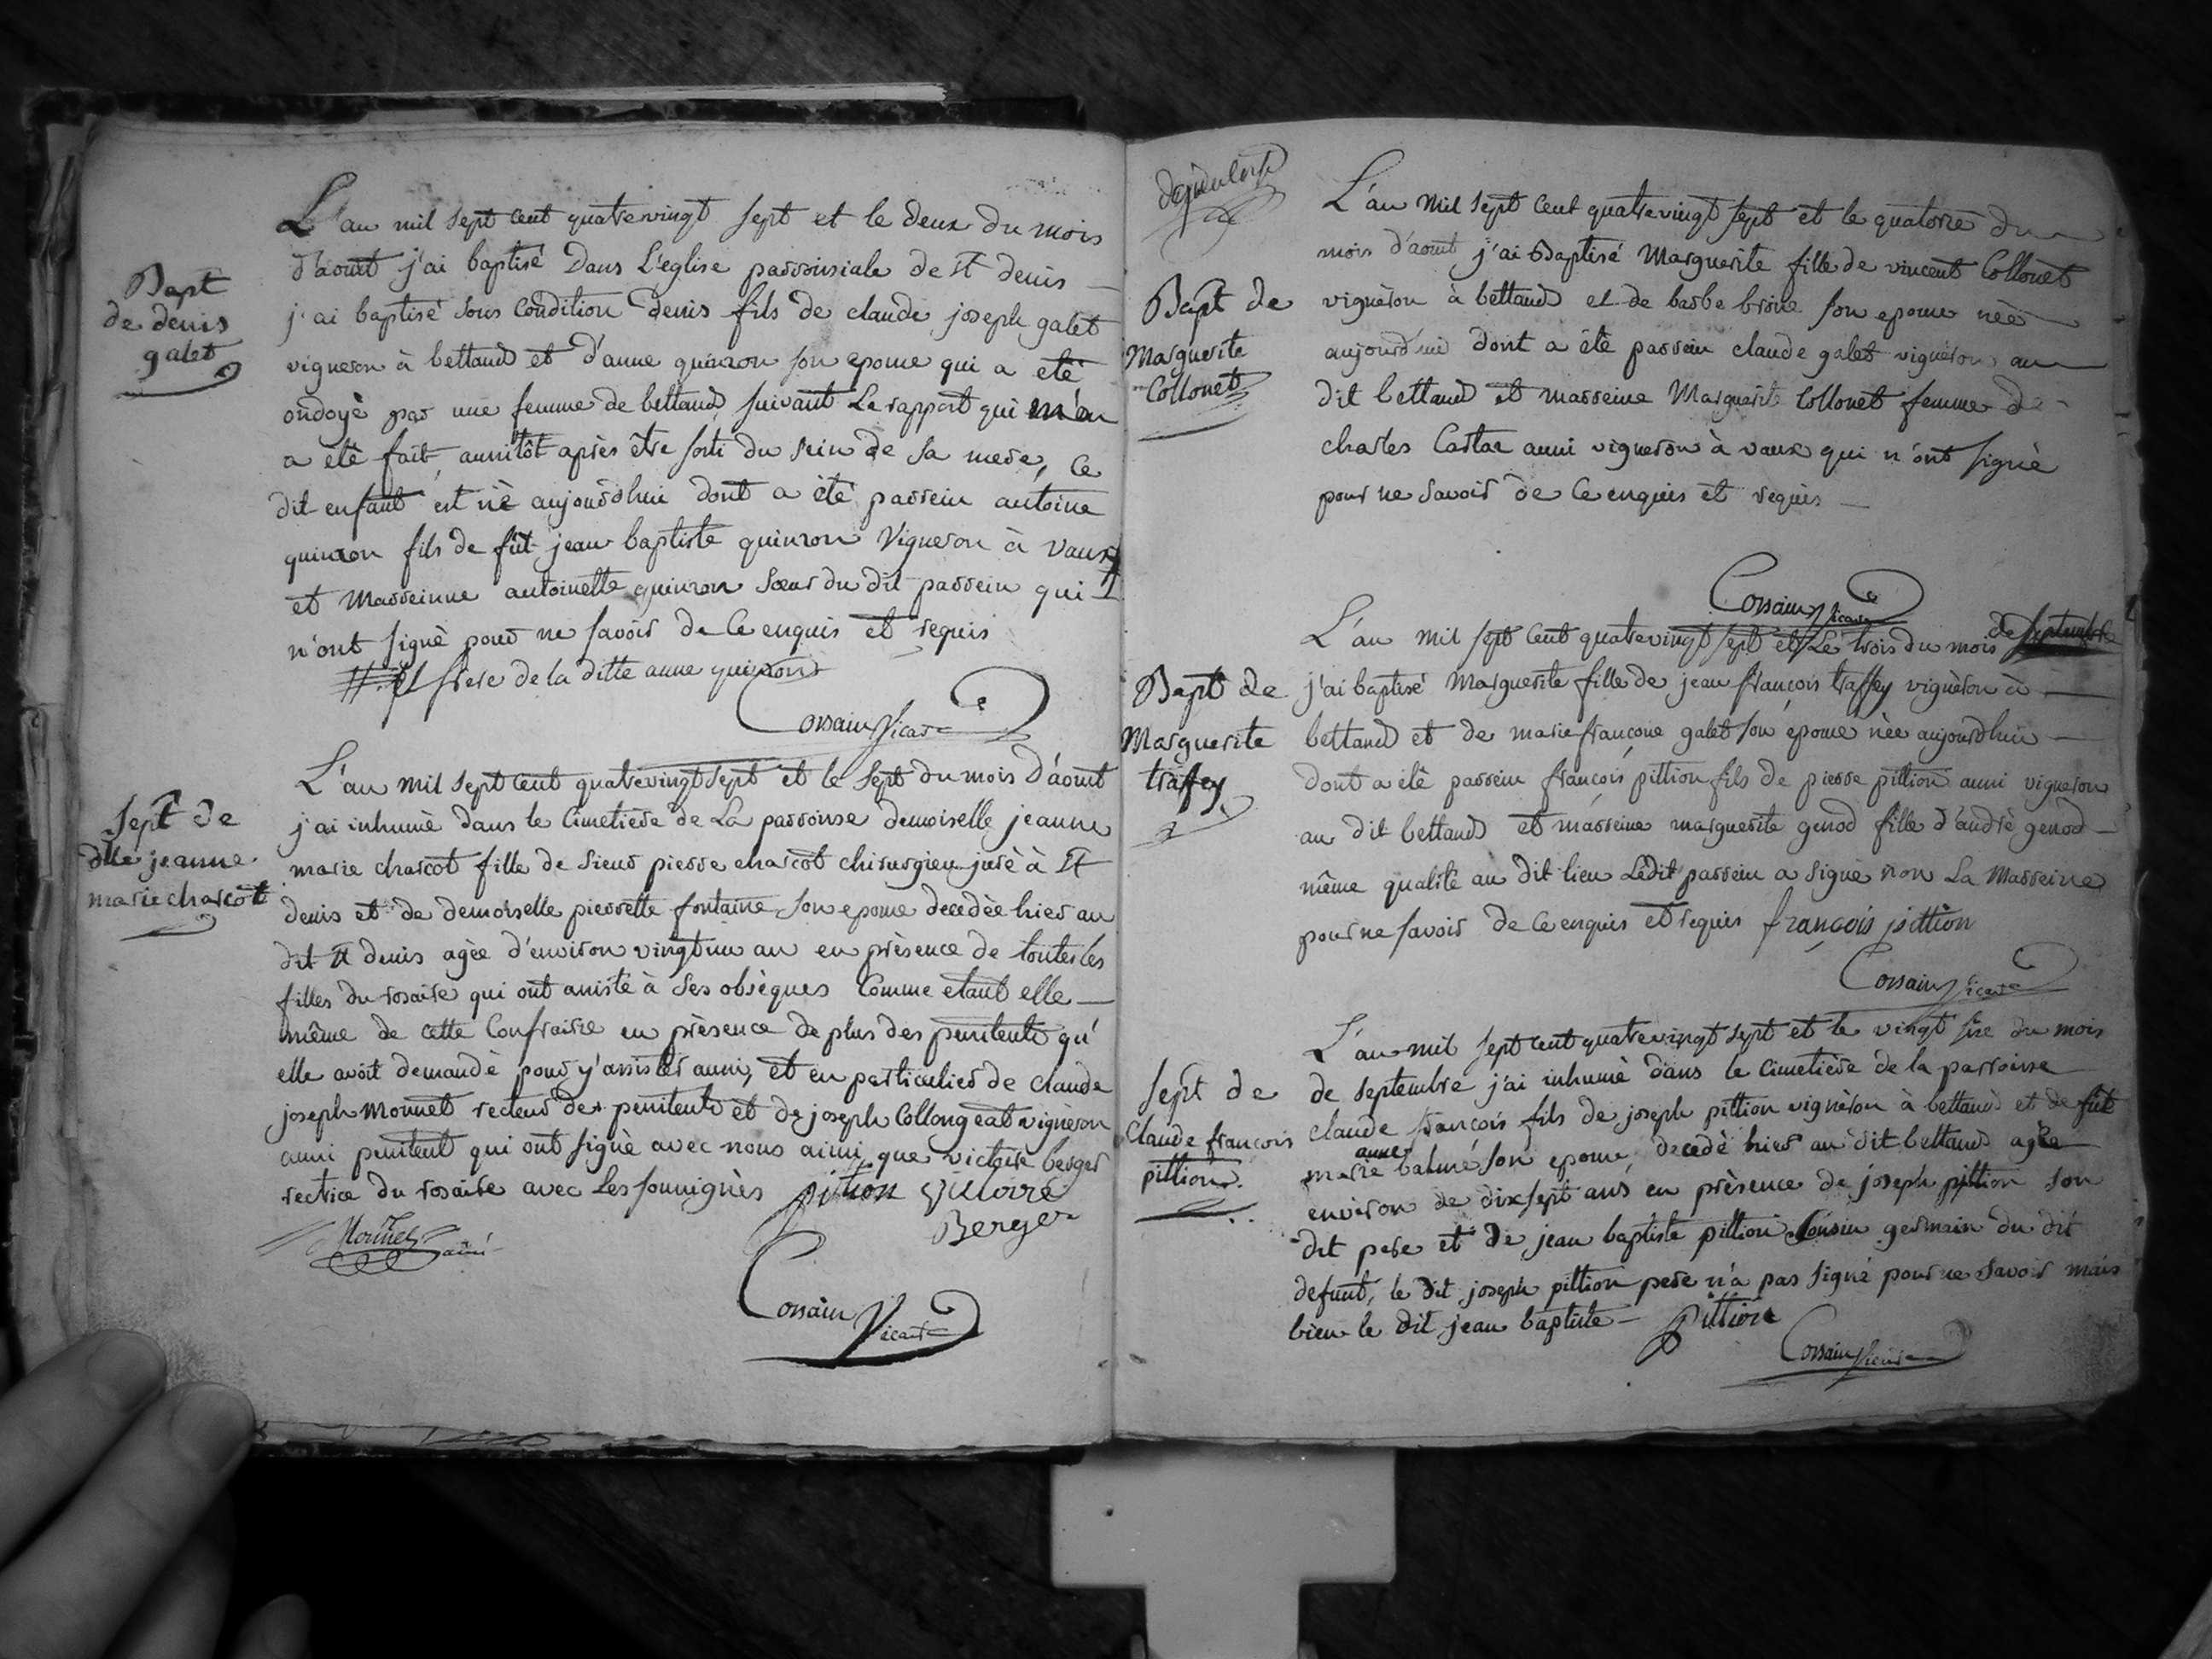 Bapt
de denis
galet
L'an mil sept cent quatrevingt sept et le deux du mois
d'aout j'ai baptisé Dans L'eglise parroissiale de St denis
j'ai baptisé sous condition denis fils de claude joseph galet
vigneron à bettand et d'anne quinson son epouse qui a eté
ondoyé par une femme de bettand suivant Le rapport qui m'en
a eté fait, aussitôt après être sorti du sein de sa mere, ce
dit enfant est né aujourdhui dont a été parrein antoine
quinson fils de fût jean baptiste quinson Vigneron à Vaux #
et Marreinne antoinette quinson sœur du dit parrein qui
n'ont signé pour ne savoir de ce enquis et requis
# et frere de la ditte anne quinson
Corsain Vicaire
Sept de
dlle jeanne
marie charcot
L'an mil sept cent quatrevingt sept et le sept du mois d'aout
j'ai inhumé dans le cimetiere de La parroisse demoiselle jeanne
marie charcot fille de sieur pierre charcot chirurgien juré à St
denis et de demoiselle pierrette fontaine son epouse decedée hier au
dit St denis agée d'environ vingt un an en présence de toutes les
filles du rosaire qui ont assisté à ses obsèques comme etant elle
même de cette confrairie en présence de plus des penitents qu'
elle avoit demandé pour y assister aussi, et en particulier de claude
joseph Monnet recteur des penitents et de joseph Collongeat vigneron
aussi penitent qui ont signé avec nous ainsi que victoire berger
rectrice du rosaire avec Les soussignés pittion victoire
Berger
Monnet ainé
Corsain Vicaire
Bapt de
Marguerite
Collonet
L'an mil sept cent quatrevingt sept et le quatorze du
mois d'aout j'ai Baptisé Marguerite fille de vincent Collonet
vigneron à bettand et de barbe brive son epouse née
aujourd'hui dont a été parrein claude galet vigneron au
dit bettand et marreine Marguerite Collonet femme de
charles Cartae aussi vigneron à vaux qui n'ont signé
pour ne savoir de ce enquis et requis
Corsain Vicaire
Bapt de
Marguerite
traffey
L'an mil sept cent quatrevingt sept et Le trois du mois de septembre
j'ai baptisé Marguerite fille de jean françois traffey vigneron à
bettand et de marie françoise galet son épouse née aujourdhui
dont a été parrein françois pittion fils de pierre pittion aussi vigneron
au dit bettand et marreine marguerite genod fille d'andré genod
même qualité au dit lieu Ledit parrein a signé non La Marreine
pour ne savoir de ce enquis et requis françois pittion
Corsain Vicaire
Sept de
Claude françois
pittion
L'an mil sept cent quatrevingt sept et le vingt six du mois
de septembre j'ai inhumé dans le cimetiere de la parroisse
claude françois fils de joseph pittion vigneron à bettand et de fût
anne
marie balme son epouse, decedé hier au dit bettand agé
environ de dix sept ans en présence de joseph pittion son
dit pere et de jean baptiste pittion cousin germain du dit
defunt, le dit joseph pittion pere n'a pas signé pour ne savoir mais
bien le dit jean baptiste pittion
Corsain Vicaire